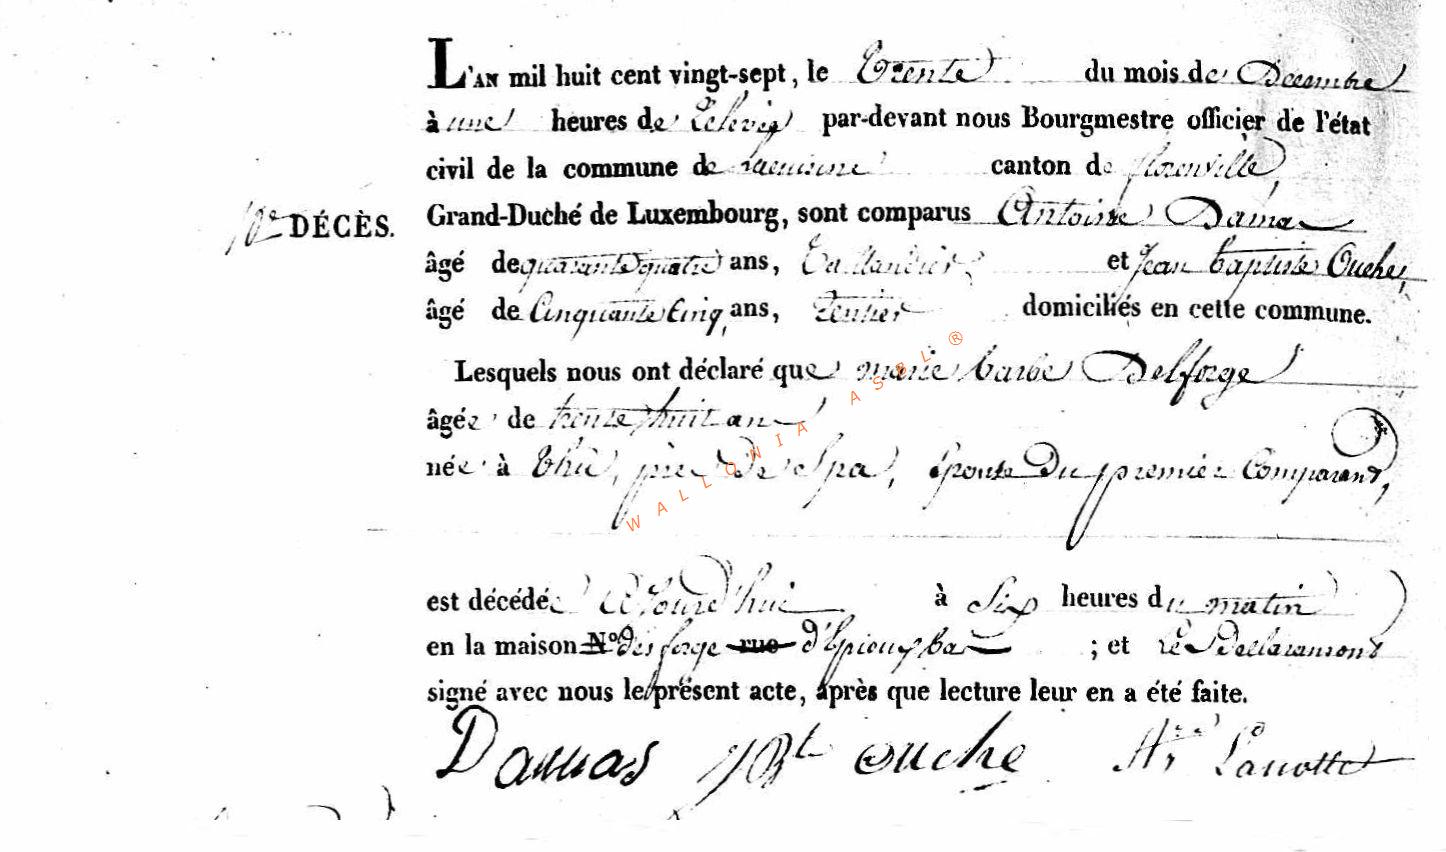 L'AN mil huit cent vingt-sept, le trente du mois de Decembre
à une heures de relevée par-devant nous Bourgmestre officier de l'état
civil de la commune de Lacuisine canton de florenville,
10e DÉCÈS. Grand-Duché de Luxembourg, sont comparus Antoine Damas
âgé de quarante quatre ans, taillandier et Jean baptiste Ouche,
âgé de Cinquante Cinq ans, rentier domiciliés en cette commune.
Lesquels nous ont déclaré que marie barbe Delforge
âgée de trente huit ans
née à theu, près de Spa, Epouse Du premier Comparant,
est décédée à six heures du matin
en la maison No des forge rue d'Epiouxbas ; et les Declaramont
signé avec nous le présent acte, après que lecture leur en a été faite.
Damas JBte ouche Hri Lanotte
WALLONIA ASBL ®